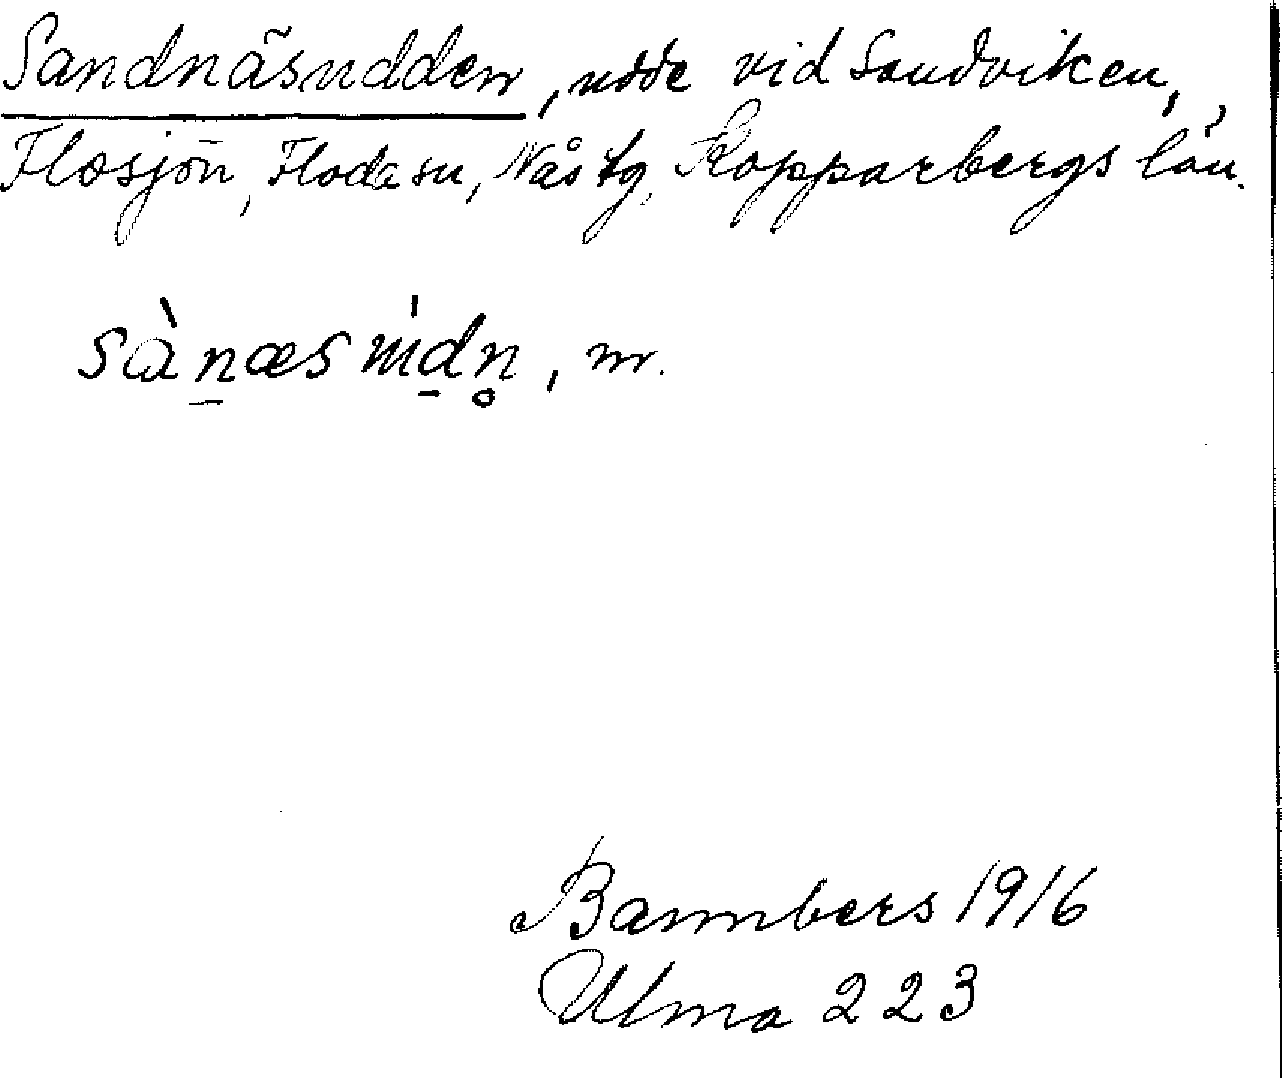 Sandnäsudden, udde vid Sandviken,
Flosjön, Floda sn, Nås tg, Kopparbergs län.
sànæsɯ́dn̥, m.
Bannbers 1916
Ulma 223